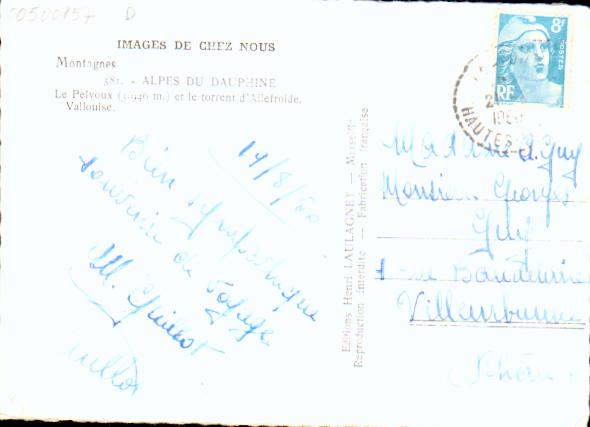 00500157 D
IMAGES DE CHEZ NOUS
Montagnes
581. - ALPES DU DAUPHINÉ
Le Pelvoux (3.946 m.) et le torrent d'Ailefroide.
Vallouise.
14/8/50
Bien sympathique
souvenir du voyage
M. Guillot
Editions Henri LAULAGNET — Marseille
Reproduction Interdite — Fabrication française
8F
POSTES
RF
1950
HAUTES
Madame &
Monsieur Georges
Guy
Villeurbanne
Rhône